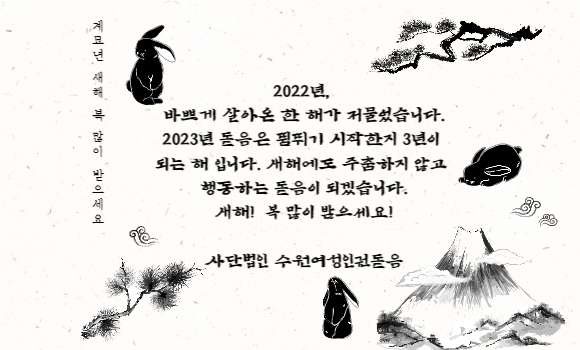 계묘년 새해 복 많이 받으세요
2022년,
바쁘게 살아온 한 해가 저물었습니다.
2023년 돋음은 펌뛰기 시작한지 3년이
되는 해 입니다. 새해에도 주춤하지 않고
행동하는 돋음이 되겠습니다.
새해! 복 많이 받으세요!
사단법인 수원여성인권돋음